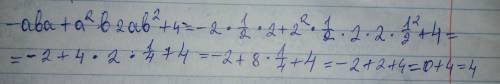 -aba+a²b2ab²+4=-2·1/2·2+2²·1/2·2·2·1²/2+4=
=-2+4·2·1/4+4=-2+8·1/4+4=-2+2+4=0+4=4